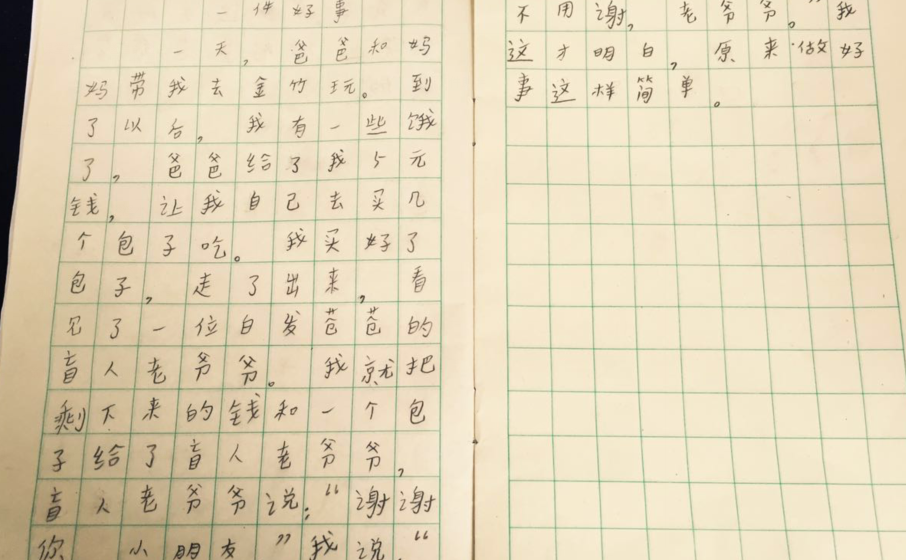 一件好事
一天，爸爸和妈
妈带我去金竹玩。到
了以后，我有一些饿
了，爸爸给了我5元
钱，让我自己去买几
个包子吃。我买好了
包子，走了出来，看
见了一位白发苍苍的
盲人老爷爷。我就把
剩下来的钱和一个包
子给了盲人老爷爷，
盲人老爷爷说：“谢谢
你 小朋友”我说“
不用谢，老爷爷。”我
这才明白，原来做好
事这样简单。